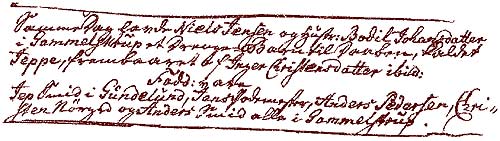 Samme Dag havde Niels Jensen og Hustr: Bodil Johansdatter
i Gammelstrup et Drenge Barn til Daaben, kaldet
Jeppe, frembaaret af Inger Christensdatter ibid:
Fadd: vare
Jep Smid i Gundelund, Jens Pedersen, Anders Pedersen, Chri-
sten Nørgrd og Anders Smid alle i Gammelstrup.